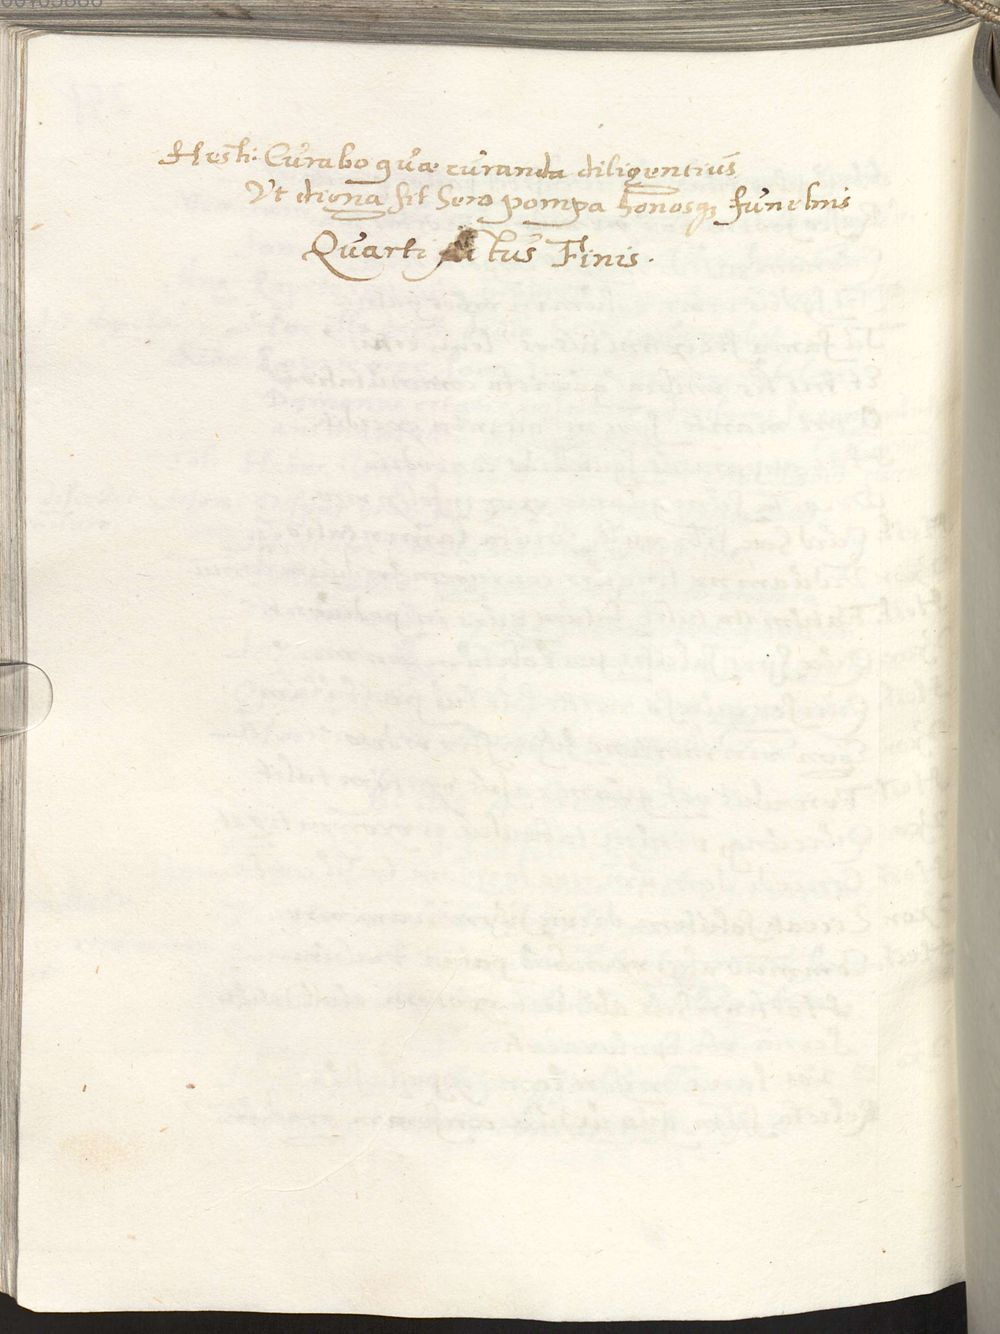 Hesti: Curabo quæ curanda diligentius
Vt digna sit hero pompa honosq; funebris
Quarti Actus Finis.